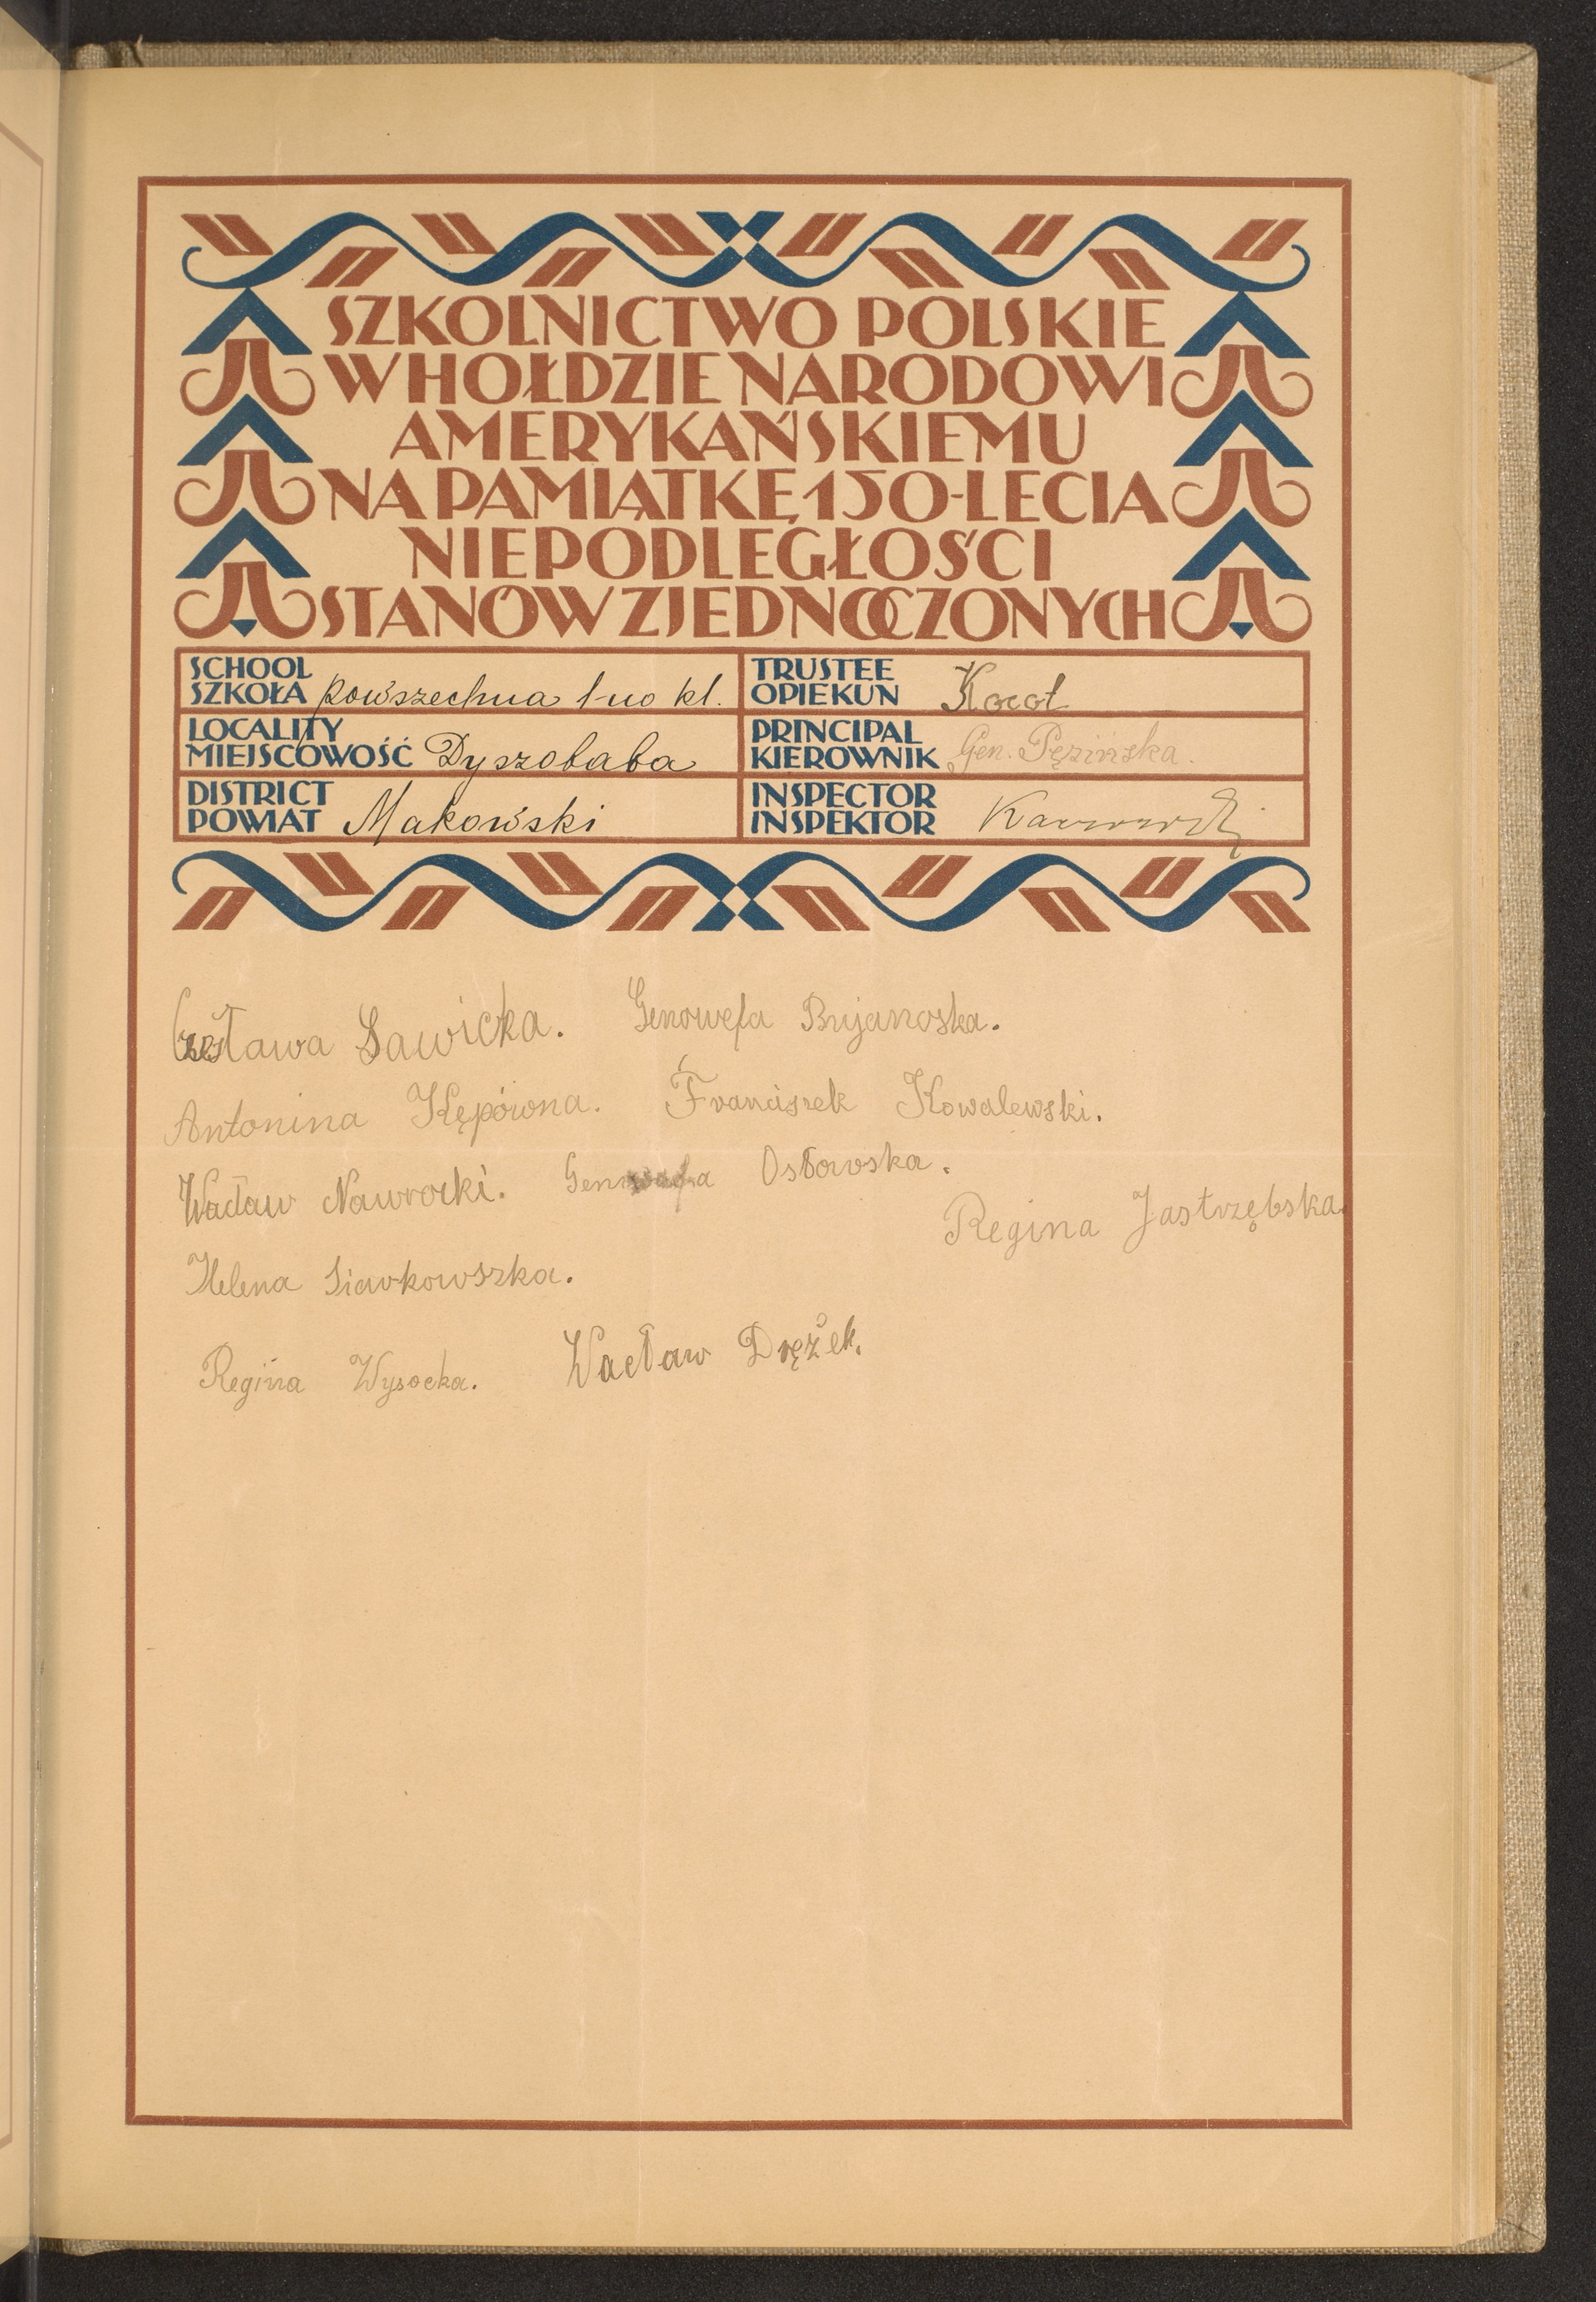 SZKOLNICTWO POLSKIE
W HOŁDZIE NARODOWI
AMERYKAŃSKIEMU
NA PAMIĄTKĘ 150-LECIA
NIEPODLEGŁOŚCI
STANÓW ZJEDNOCZONYCH
SCHOOL
SZKOŁA powszechna 1-no kl.
TRUSTEE
OPIEKUN Kocot
LOCALITY
MIEJSCOWOŚĆ Dyszobaba
PRINCIPAL
KIEROWNIK Gen. Pęzińska.
DISTRICT
POWIAT Makowski
INSPECTOR
INSPEKTOR
Czesława Sawicka. Genowefa Bujanoska.
Antonina Kępówna. Franciszek Kowalewski.
Wacław Nawrocki. Genowefa Ostowska.
Regina Jastrzębska.
Helena Siawkowszka.
Regina Wysocka. Wacław Drężek.